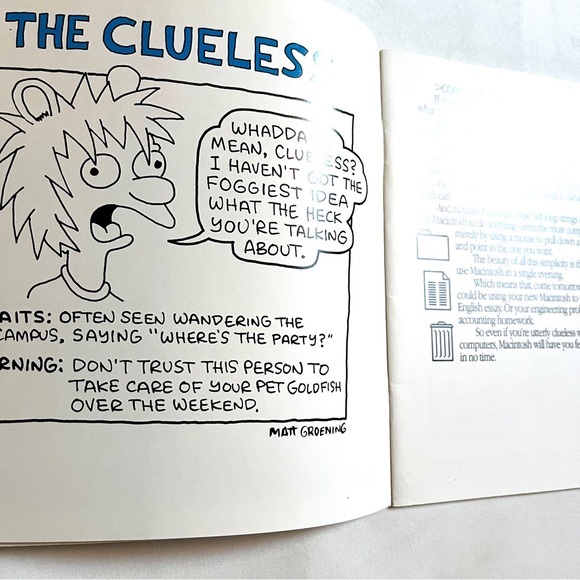 THE CLUELESS
WHADDA
MEAN, CLUELESS?
I HAVEN'T GOT THE
FOGGIEST IDEA
WHAT THE HECK
YOU'RE TALKING
ABOUT.
AITS: OFTEN SEEN WANDERING THE
CAMPUS, SAYING "WHERE'S THE PARTY?"
RNING: DON'T TRUST THIS PERSON TO
TAKE CARE OF YOUR PET GOLDFISH
OVER THE WEEKEND.
MATT GROENING
merely by using a mouse to pull down a
and point to the one you want.
The beauty of all this simplicity is th
use Macintosh in a single evening.
Which means that, come tomorrow
could be using your new Macintosh to
English essay. Or your engineering pro
accounting homework.
So even if you're utterly clueless w
computers, Macintosh will have you fe
in no time.